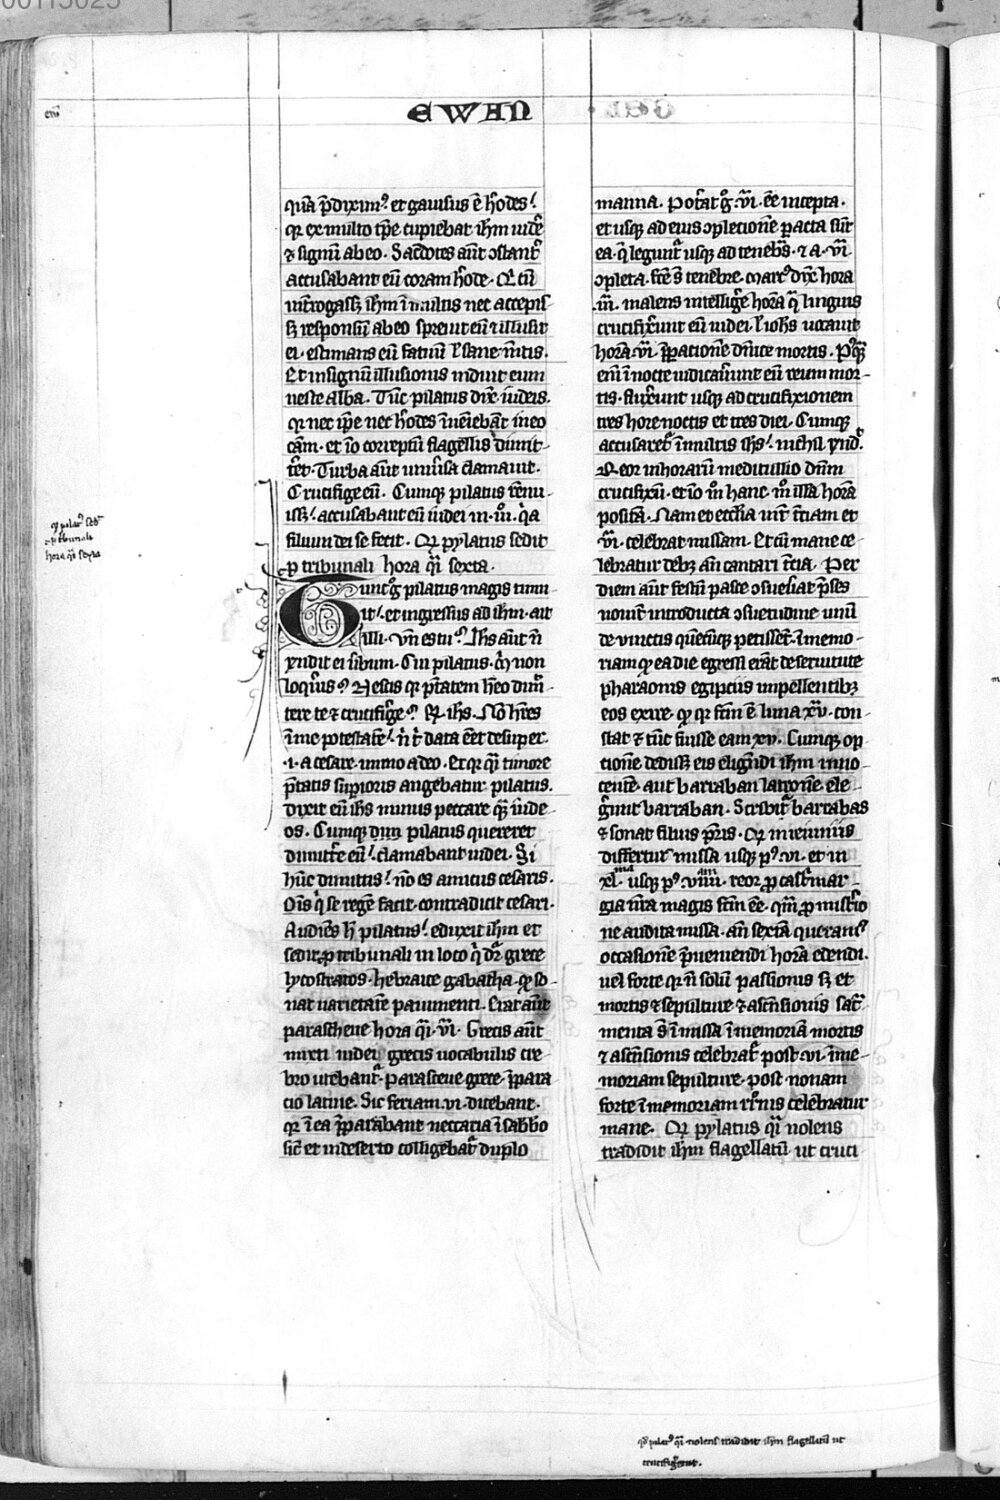 00115025
EWAN
qua p̄dixim᷒. et gauisus ē h̓odes.
qr ex multo tp̄e cupiebat ih̄m uid̓e
⁊ signū ab eo. Sac̓dotes aūt ꝯstant̓
accusabant eū coram h̓ode. Qi cū
int̓rogass; ih̄m ī multis nec accepis-
s; responsū ab eo spreuit eū ⁊ illusit
ei. estimans eū fatuū ł sane m̄tis.
Et in signum illusionis induit eum
ueste alba. Tūc pilatus dix̓ iudeis.
qr nec ip̄e nec h̓odes īueniebāt in eo
cām. et iō correptū flagellis dimit-
t̓et. Turba aūt uniu̓sa clamauit.
Crucifige eū. Cumqꝫ pilatus renu-
iss; accusabant eū iudei
filium dei se fecit. Qr pylatus sedit
ꝓ tribunali hora q̄i sexta.
Tunc g̊ pilatus magis timu
it. et ingressus ad ih̄m. ait
illi. Vn̄ es tu? Ihs aūt n̄
rn̄dit ei u̓bum. Cui pilatus. m̓ non
loq̓ris? Nescis qr p̄tatem h̓eo dimi
tere te ⁊ crucifig̓e? Rx ihs. Nō h̓res
ī me potestatē. n̄ t̓ data ēet desuper.
.i. a cesare. immo a deo. Et qr q̄i timore
p̄tatis sup̓ioris angebatur pilatus.
dixit eū ihs minus peccare q̄ꝫ iude
os. Cumqꝫ dum pilatus quereret
dimitt̓e eū. clamabant iudei. Si
hūc dimittis. nō es amicus cesaris.
Oīs q̓ se regē facit. contradicit cesari.
Audiēs h̓ pilatus. eduxit ih̄m et
sedit ꝓ tribunali in loco q̓ dr̄ grece
lycostratos. hebraice gabatha. qd̓ so-
nat uarietatē pauimenti. Erat aūt
parasceue hora q̄i .vi. Grecis aūt
mixti iudei grecis uocabulis cre-
bro utebant̓. parasceue grece. p̄para
cio latine. Sic feriam .vi. dicebant.
qr ī ea p̄parabant neccaria ī sabbō
sic̄ et in deserto colligebat̓ duplo
manna. Pot̓at g̊ .vi. ēe incepta.
et usqꝫ ad eius ꝯpletionē pacta sūt
ea. q̄ legunt̓ usqꝫ ad tenebᷓs. ⁊ a .vi.
ꝯpleta. fc̄e s̄t tenebre. Marc᷒ dix̓ hora
.iii. malens intellig̓e horā q̄ linguis
crucifix̓unt eū iudei. ł iohs uocauit
horā .vi. p̄paratione dn̄ice mortis. P᷒qꝫ
eni̅ ī nocte iudicau̓unt eū reum mor-
tis. flux̓unt usqꝫ ad crucifixionem
tres hore noctis et tres diei. Cumqꝫ
accusaret̓ ī multis ihs. nichil rn̄d̓.
Reor in horarū meditullio dn̄m
crucifixū. et iō m̊ hanc. m̊ illa horā
positā. Nam et ecclīa int̓ t̓ciam et
.vi. celebrat missam. Et cū mane ce-
lebratur debꝫ an̄ cantari t̓cia. Per
diem aūt festū pasce ꝯsueu̓at p̄ses
nouit̓ introducta ꝯsuetudine unū
de uinctis quēcūqꝫ petissēt. ī memo-
riam qd̓ ea die egressi erāt de seruitute
pharaonis egiptiis impellentibꝫ
eos exire. qd̓ qr fcm̄ ē luna .xv. con-
stat ⁊ tūc fuisse eam .xv. Cumqꝫ op
tionē dediss; eis eligendi ih̄m inno
centē. aut barraban latronē. ele
g̓unt barraban. Scribit̓ barrabas
⁊ sonat filius pr̄is. Qr in ieiuniis
differtur missa usqꝫ p᷒ .vi. et in
xl.ma usqꝫ p᷒ .viiii.am reor ꝓ
nr̄a magis fcm̄ ēe. qm̄ ꝓ
ne audita missa. an̄ sextā querant̓
occasionē p̄ueniendi horā edendi.
uel forte qr n̄ solū passionis s; et
mortis ⁊ sepulture ⁊ ascēsionis sac̓-
menta s̄t ī missa ī memoriā mortis
⁊ ascēsionis celebrat̓ post .vi. ī me-
moriam sepulture. post nonam
forte ī memoriam celebratur
mane. Qr pylatus q̄i nolens
tradidit ih̄m flagellatū ut cruci
qd̓ pilat᷒ sedit
ꝓ tribunali
hora q̄i sexta
qd̓ pilat᷒ q̄i nolens tradidit ih̄m flagellatū ut
crucifig̓etur.